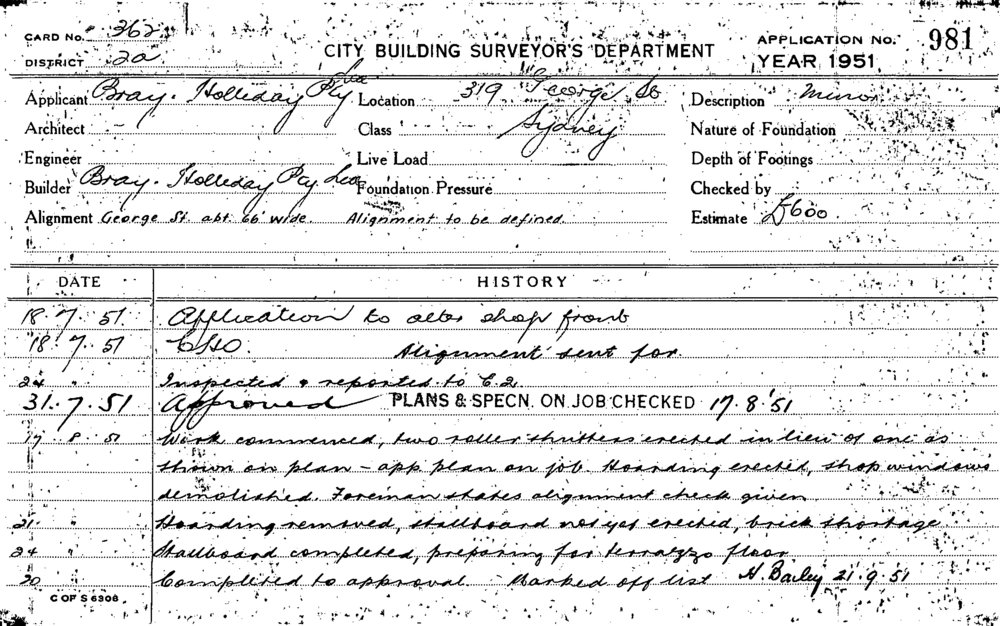 CARD No. 362
DISTRICT 2a
CITY BUILDING SURVEYOR'S DEPARTMENT
APPLICATION No. 981
YEAR 1951
Applicant Bray. Holliday Pty Ltd
Location 319 George St
Sydney
Description Minor
Architect
Class
Nature of Foundation
Engineer
Live Load
Depth of Footings
Builder Bray. Holliday Pty Ltd
Foundation Pressure
Checked by
Alignment George St. abt. 66' wide. Alignment to be defined
Estimate £600
DATE HISTORY
18.7.51 Application to alter shop front
18.7.51 Alignment sent for
24 " Inspected & reported to C.2
31.7.51 Approved PLANS & SPECN. ON JOB CHECKED 17.8.51
17.8.51 Work commenced, two roller shutters erected in lieu of one as
shown on plan - app plan on job. Hoarding erected, shop windows
demolished. Foreman states alignment check given
21. " Hoarding removed, stallboard not yet erected, brick shortage
24 " Stallboard completed, preparing for terrazzo floor
20 Completed to approval. Marked off list H. Bailey 21.9.51
C OF S 6306